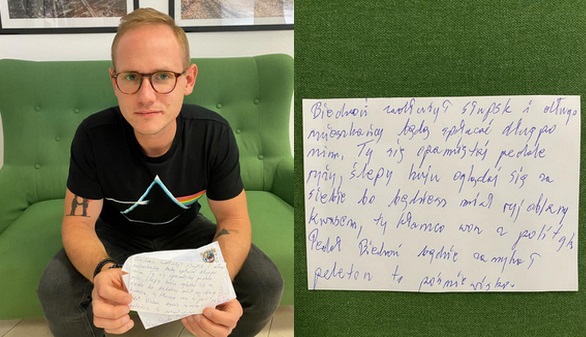 Biedroń zadłużył Słupsk i długo
mieszkańcy będą spłacać długi po
nim. Ty się opamiętaj pedale
ryży, ślepy huju oglądaj się za
siebie bo będziesz miał ryj oblany
kwasem, ty kłamco won z polityk
Pedał Biedroń będzie zamykał
peleton to